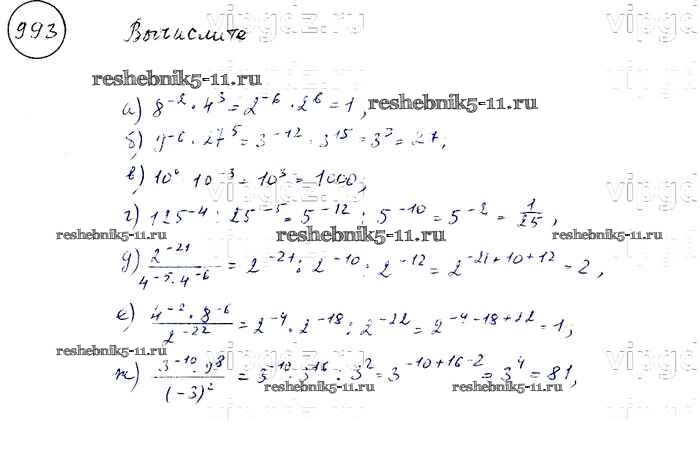 993 Вычислите vipgdz.ru
reshebnik5-11.ru
а) 8⁻² · 4³ = 2⁻⁶ · 2⁶ = 1, reshebnik5-11.ru
б) 9⁻⁶ · 27⁵ = 3⁻¹² · 3¹⁵ = 3³ = 27;
в) 10⁶ 10⁻³ = 10³ = 1000; vipgdz.ru
г) 125⁻⁴ : 25⁻⁵ = 5⁻¹² : 5⁻¹⁰ = 5⁻² = 1/25,
reshebnik5-11.ru reshebnik5-11.ru reshebnik5-11.ru
д) 2⁻²¹/(4⁻⁵ · 4⁻⁶) = 2⁻²¹ : 2⁻¹⁰ : 2⁻¹² = 2⁻²¹⁺¹⁰⁺¹² = 2,
vipgdz.ru
е) (4⁻² · 8⁻⁶)/2⁻²² = 2⁻⁴ · 2⁻¹⁸ : 2⁻²² = 2⁻⁴⁻¹⁸⁺²² = 1,
reshebnik5-11.ru reshebnik5-11.ru
ж) (3⁻¹⁰ · 9⁸)/(-3)² = 3⁻¹⁰ · 3¹⁶ : 3² = 3⁻¹⁰⁺¹⁶⁻² = 3⁴ = 81,
reshebnik5-11.ru reshebnik5-11.ru
vipgdz.ru